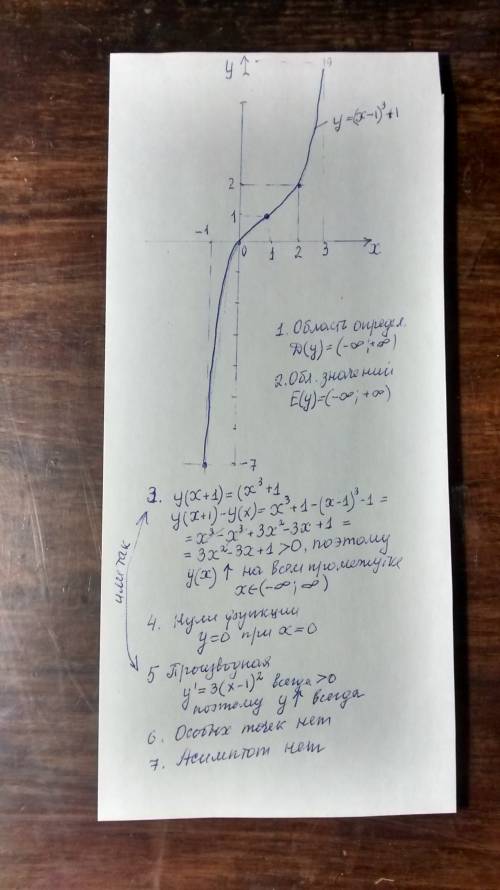 y
9
y=(x-1)³+1
2
1
-1
0
1
2
3
x
-7
1. Область определ.
D(y)=(-∞;+∞)
2. Обл. значений
E(y)=(-∞;+∞)
3. y(x+1)=(x³+1
y(x+1)-y(x)=x³+1-(x-1)³-1=
=x³-x³+3x²-3x+1=
=3x²-3x+1>0, поэтому
y(x)↑ на всем промежутке
x∈(-∞;∞)
или так
4. Нули функции
y=0 при x=0
5 Производная
y'=3(x-1)² всегда >0
поэтому y↑ всегда
6. Особых точек нет
7. Асимптот нет